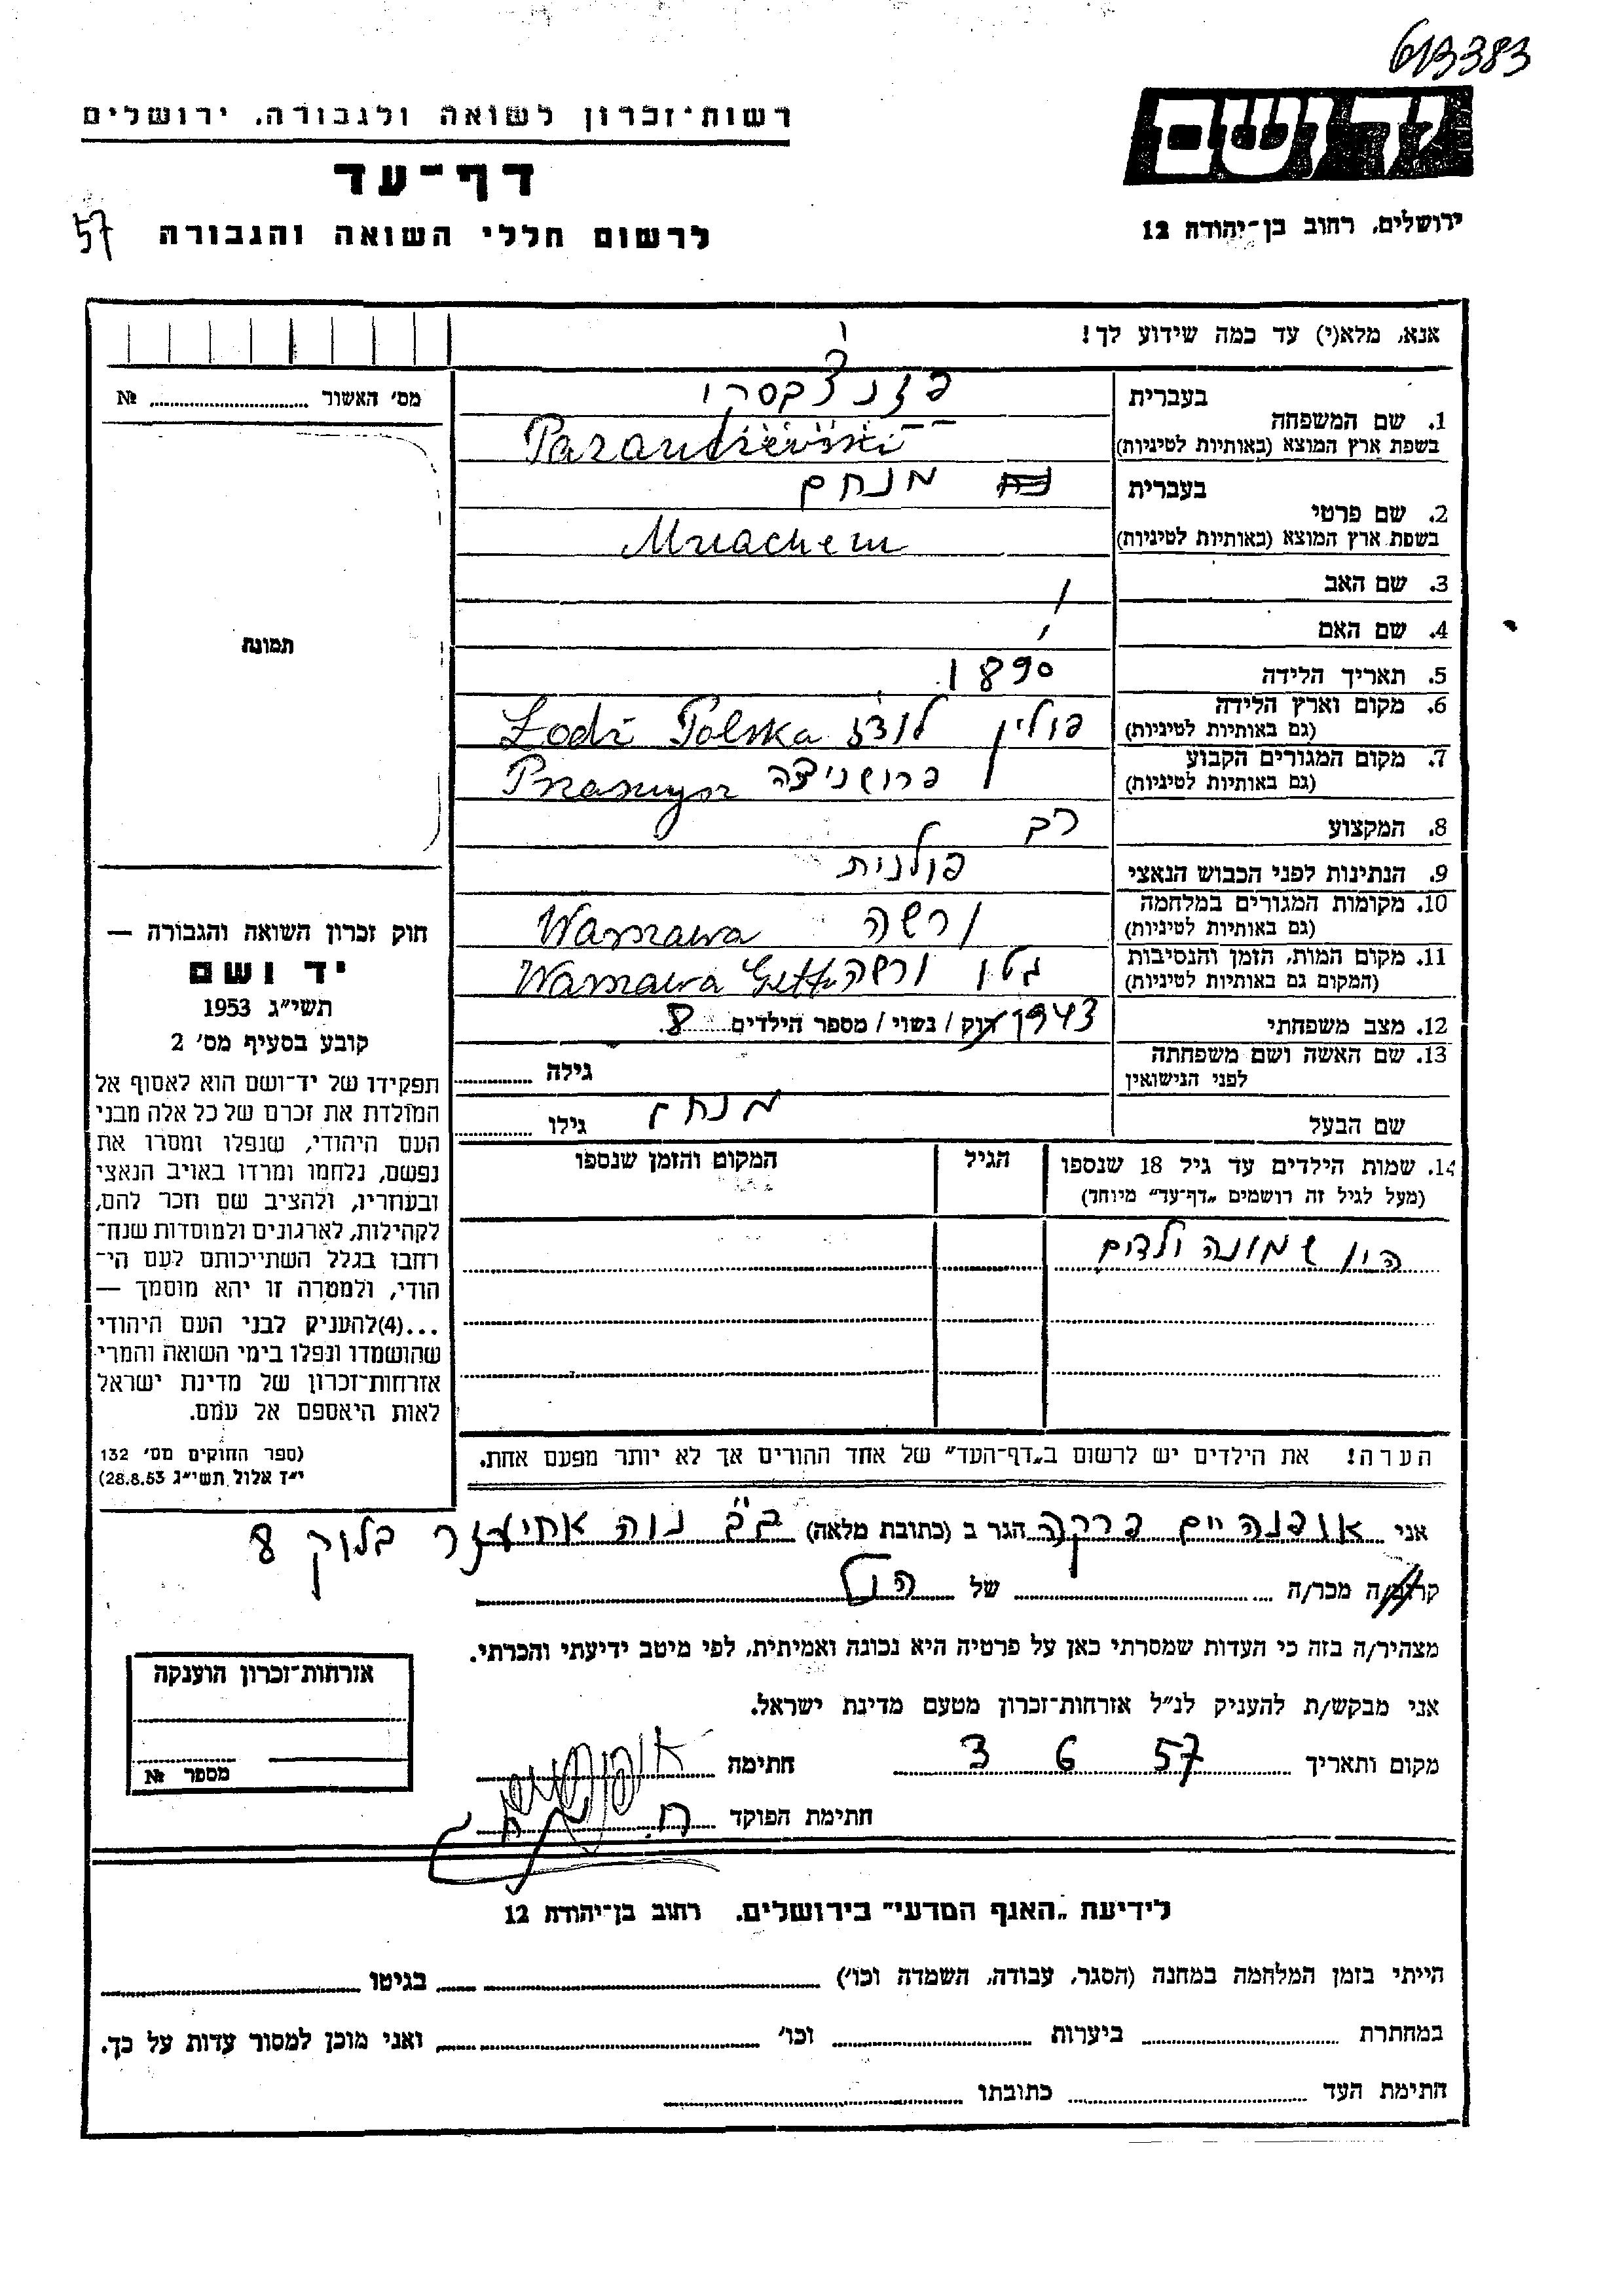 613383
רשות־זכרון לשואה ולגבורה, ירושלים
יד ושם
דף־עד
ירושלים, רחוב בן־יהודה 12
לרשום חללי השואה והגבורה
57
אנא, מלא(י) עד כמה שידוע לך!
מס׳ האשור ........ №
תמונה
בעברית
1. שם המשפחה
בשפת ארץ המוצא (באותיות לטיניות)
בעברית מנחם
2. שם פרטי
בשפת ארץ המוצא (באותיות לטיניות)
3. שם האב /
4. שם האם
5. תאריך הלידה 1890
6. מקום וארץ הלידה פולין לודז Łodź Polska
(גם באותיות לטיניות)
7. מקום המגורים הקבוע פרושניצה
(גם באותיות לטיניות)
8. המקצוע רב
9. הנתינות לפני הכבוש הנאצי פולנית
10. מקומות המגורים במלחמה ורשה Warszawa
(גם באותיות לטיניות)
11. מקום המות, הזמן והנסיבות גטו ורשה Warszawa Getto
(המקום גם באותיות לטיניות)
12. מצב משפחתי 1943 רוק / נשוי / מספר הילדים 8
13. שם האשה ושם משפחתה
לפני הנישואין
גילה ........
שם הבעל מנחם גילו ........
14. שמות הילדים עד גיל 18 שנספו
(מעל לגיל זה רושמים „דף־עד" מיוחד)
הגיל
המקום והזמן שנספו
היו שמונה ילדים
הערה! את הילדים יש לרשום ב„דף־העד" של אחד ההורים אך לא יותר מפעם אחת.
חוק זכרון השואה והגבורה —
יד ושם
תשי״ג 1953
קובע בסעיף מס׳ 2
תפקידו של יד־ושם הוא לאסוף אל
המולדת את זכרם של כל אלה מבני
העם היהודי, שנפלו ומסרו את
נפשם, נלחמו ומרדו באויב הנאצי
ובעוזריו, ולהציב שם וזכר להם,
לקהילות, לארגונים ולמוסדות שנח־
רבו בגלל השתייכותם לעם הי־
הודי, ולמטרה זו יהא מוסמך —
...(4)להעניק לבני העם היהודי
שהושמדו ונפלו בימי השואה והמרי
אזרחות־זכרון של מדינת ישראל
לאות היאספם אל עמם.
(ספר החוקים מס׳ 132
י״ד אלול תשי״ג 28.8.53)
אני הגר ב (כתובת מלאה) ב״ב נוה אחיעזר בלוק 8
קרוב/ה מכר/ה ........ של
מצהיר/ה בזה כי העדות שמסרתי כאן על פרטיה היא נכונה ואמיתית, לפי מיטב ידיעתי והכרתי.
אני מבקש/ת להעניק לנ״ל אזרחות־זכרון מטעם מדינת ישראל.
מקום ותאריך 57 6 3 חתימה
חתימת הפוקד
אזרחות־זכרון הוענקה
מספר №
לידיעת „האגף המדעי" בירושלים, רחוב בן־יהודה 12
הייתי בזמן המלחמה במחנה (הסגר, עבודה, השמדה וכו׳) ........ בגיטו ........
במחתרת ........ ביערות ........ וכו׳ ........ ואני מוכן למסור עדות על כך.
חתימת העד ........ כתובתו ........